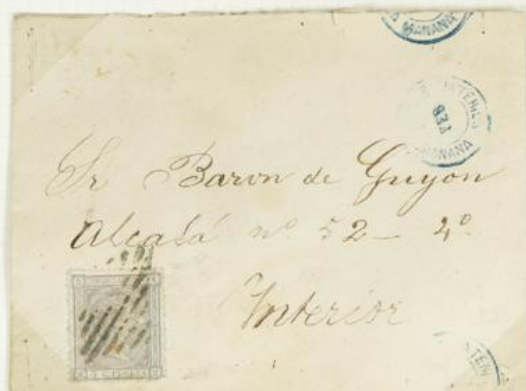 MAÑANA
INTERIOR
MAÑANA
Sr Baron de Guyon
Alcalá nº 52 — 4º
Interior